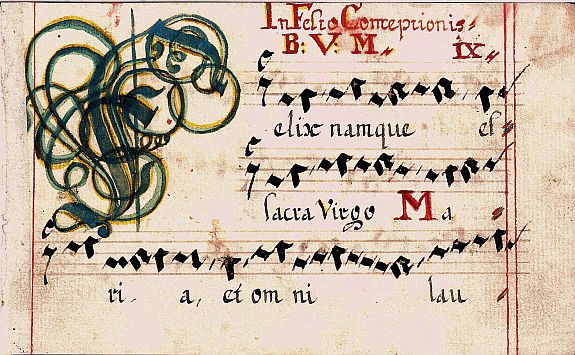 In Feſto Conceptionis
B: V: M. IX
Felix namque eſ
ſacra Virgo Ma
ri. a, et om ni lau